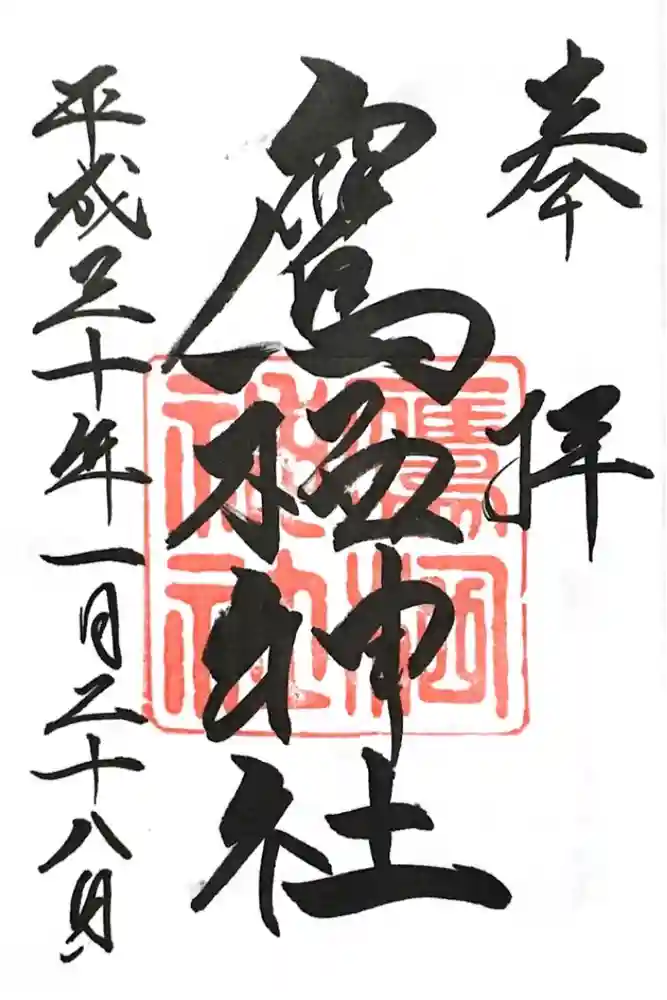 奉拝
鷹栖神社
平成三十年一月二十八日
鷹栖
神社